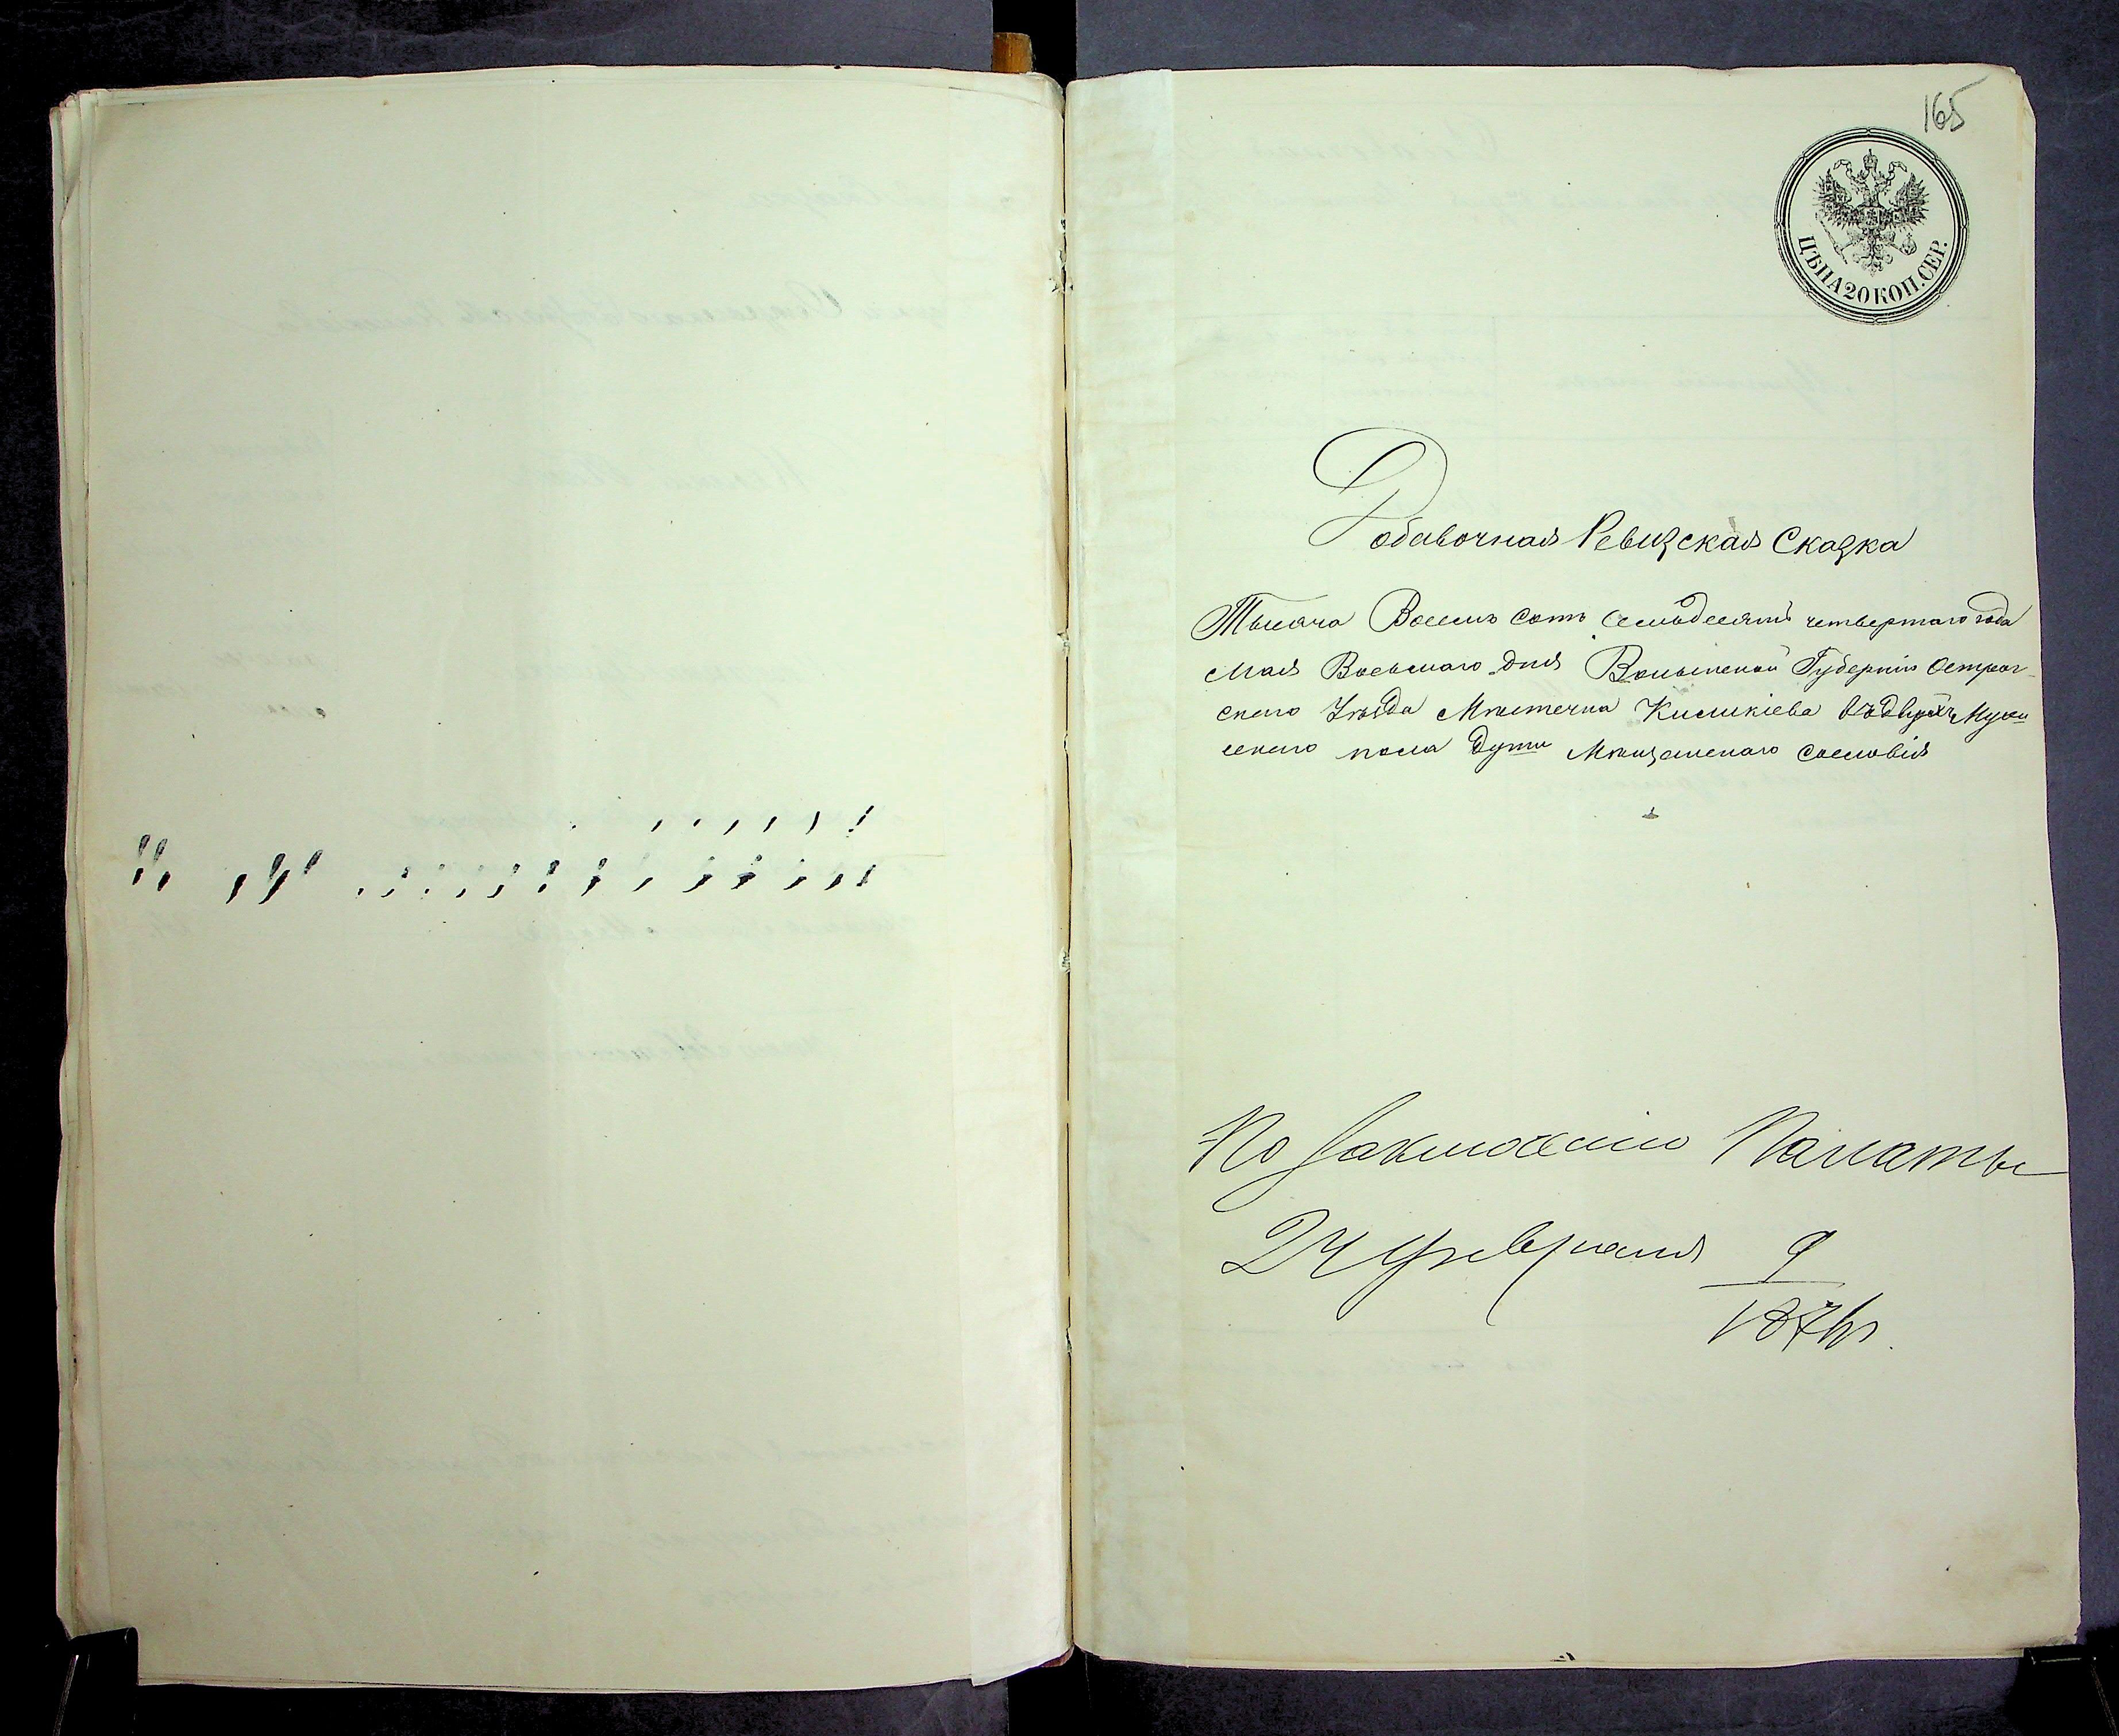 165
ЦѢНА 20 КОП. СЕР.
Добавочная Ревизская Сказка
Тысяча Восемь сотъ семьдесятъ четвертаго года
Мая Восьмаго дня Волынской Губерніи Острог-
скаго Уѣзда Мѣстечка Киликіева Мужес
скаго пола души Мѣщанскаго сословія
По заключенію Палаты
24 февраля 9
1876 г.